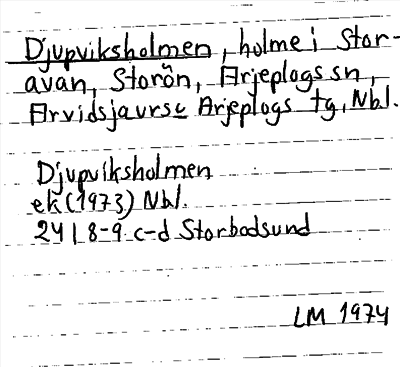 Djupviksholmen, holme i Stor-
avan, Storön, Arjeplogs sn,
Arvidsjaurs Arjeplogs tg, Nbl.
Djupviksholmen
ek (1973) Nbl.
24 I 8-9 c-d Storbodsund
LM 1974